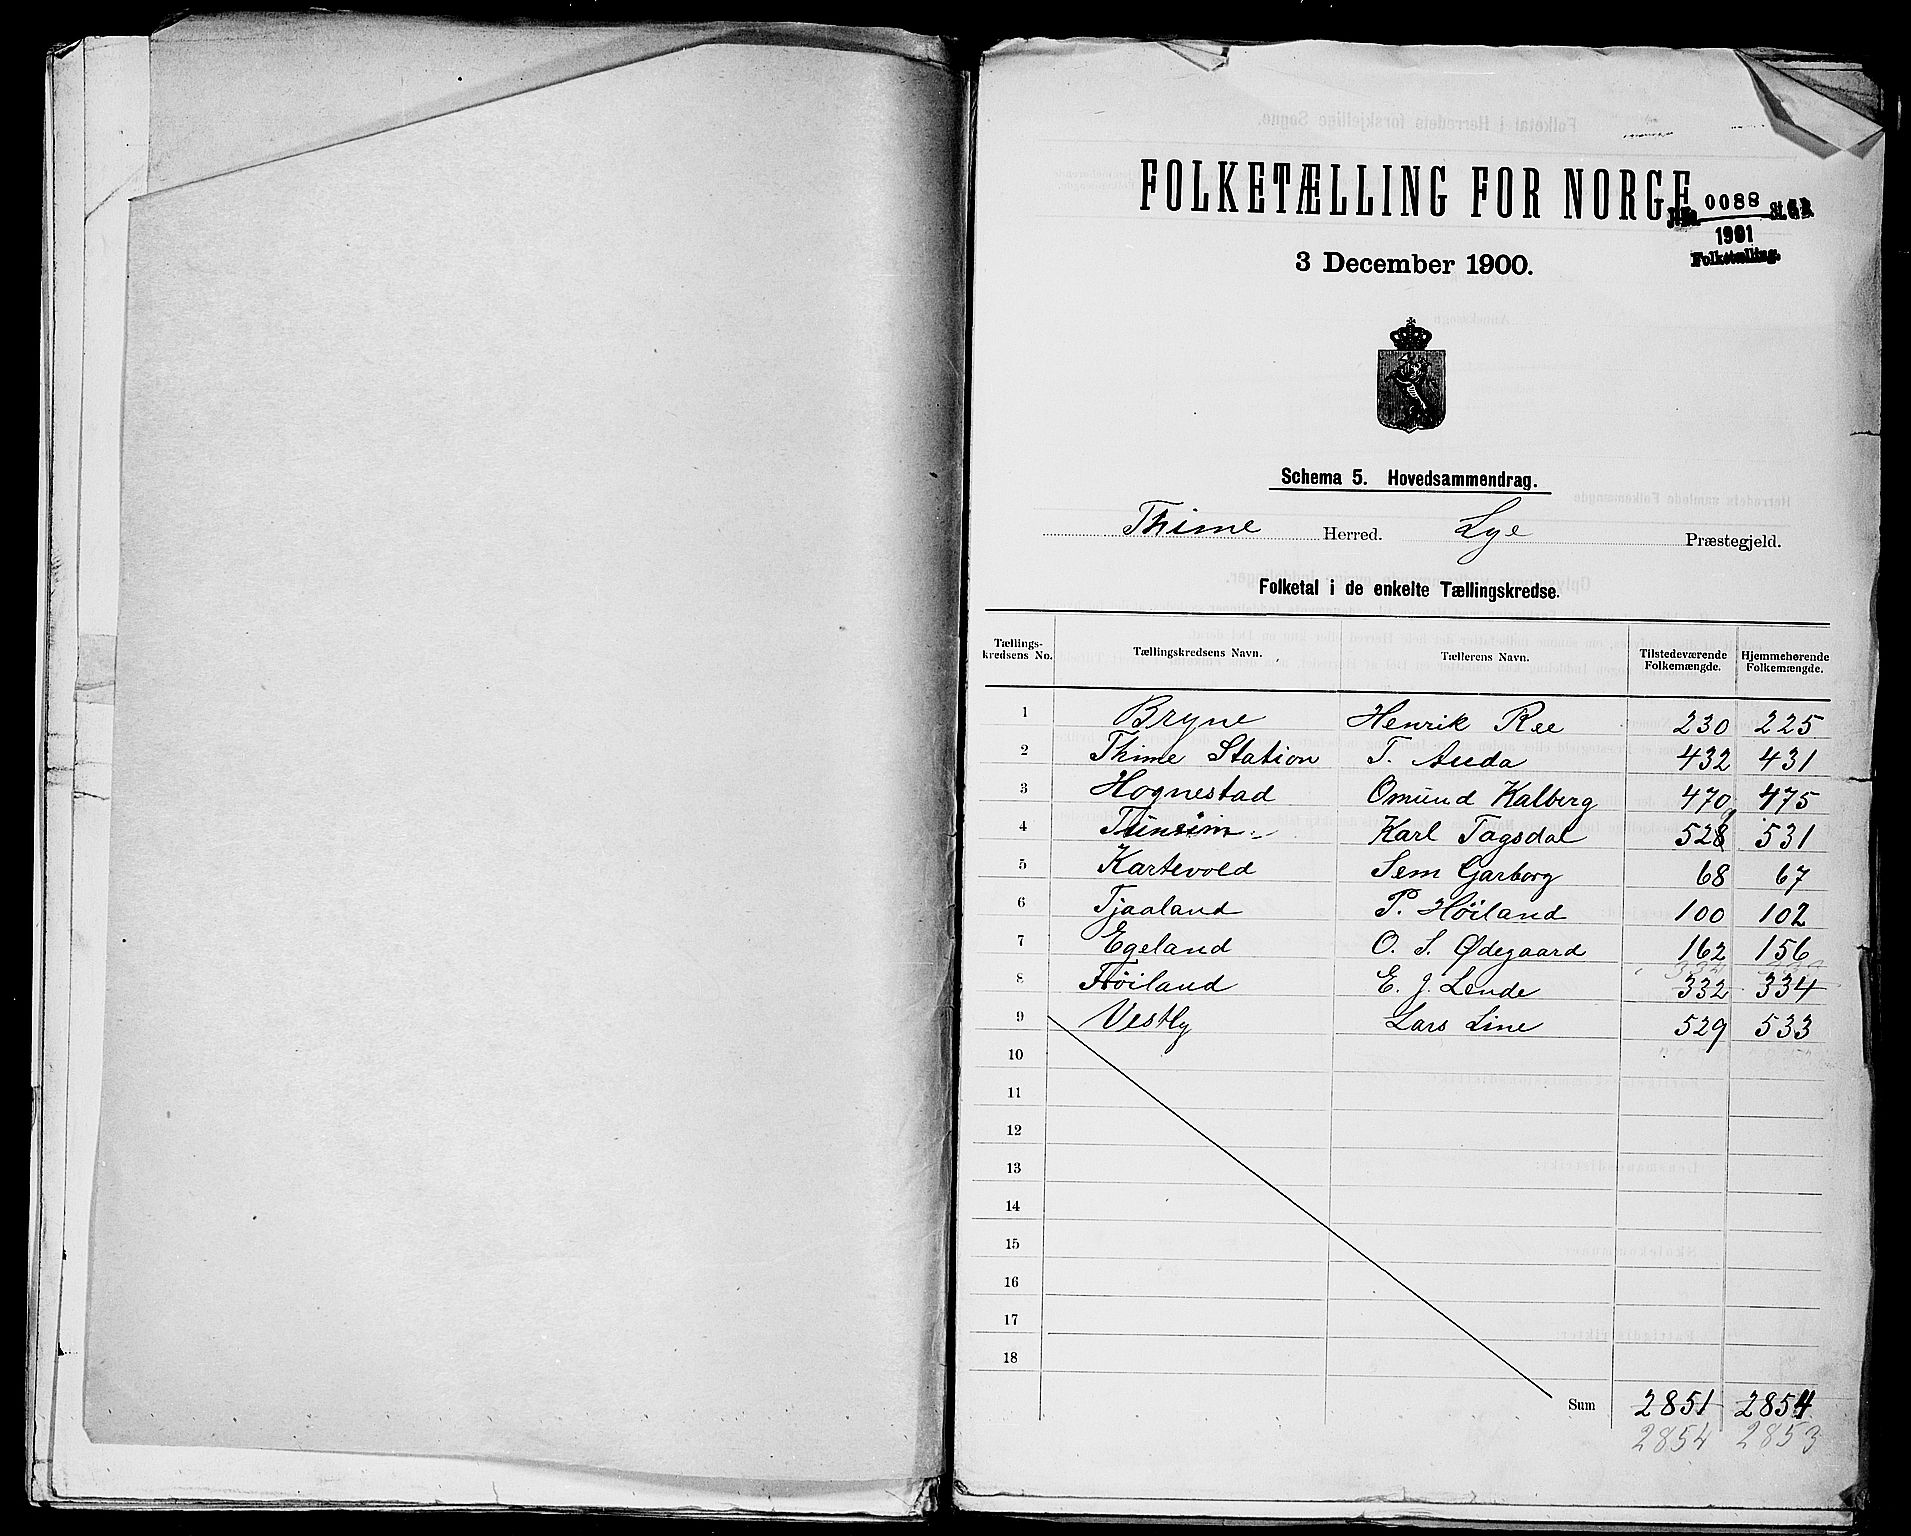 FOLKETÆLLING FOR NORGE
J. No. 0088 St. C. B.
1901
Folketælling.
3 December 1900.
Schema 5. Hovedsammendrag.
Thime Herred. Lye Præstegjeld.
Folketal i de enkelte Tællingskredse.
Tællings-kredsens No. Tællingskredsens Navn. Tællerens Navn. Tilstedeværende Folkemængde. Hjemmehørende Folkemængde.
1 Bryne Henrik Ree 230 225
2 Thime Station T. Auda 432 431
3 Hognestad Omund Kalberg 470 475
4 Karl Tagsdal 528 531
5 Kartevold Sem Garborg 68 67
6 Tjaaland P. Höiland 100 102
7 Egeland O. S. Ødegaard 162 156
8 Fröiland E. J. Lende 332 334
9 Vestly Lars Line 529 533
10
11
12
13
14
15
16
17
18
Sum 2851 2854
2854 2853